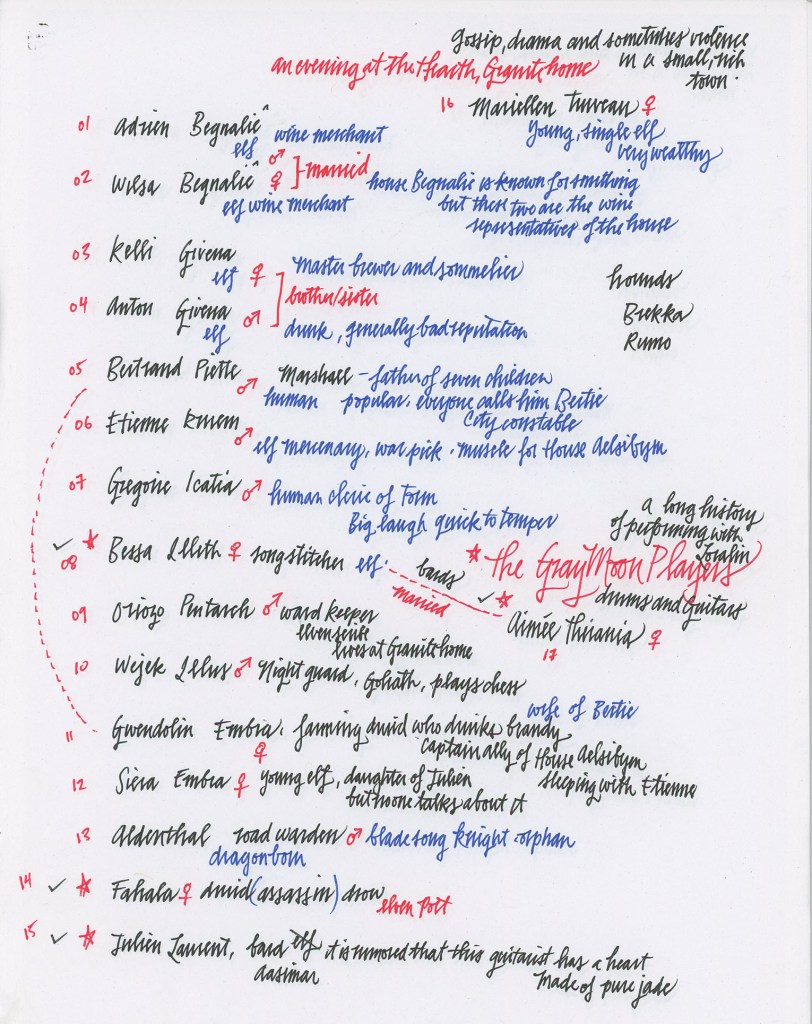 Gossip, drama and sometimes violence
in a small, rich
town.
an evening at the Hearth, Granite home
16 Mariellen Turveau ♀
young, single elf
very wealthy
01 Adrien Begnalié
elf ♂ wine merchant
02 Wilsa Begnalié ♀ ] married
elf wine merchant
house Begnalié is known for something
but these two are the wine
representatives of the house
03 Kelli Givena
elf ♀ Master brewer and sommelier
brother/sister
04 Anton Givena
elf ♂ drunk, generally bad reputation
hounds
Brekka
Rumo
05 Bertrand Piette ♂ Marshall - father of seven children
human popular. everyone calls him Bertie
City constable
06 Etienne
♂ elf mercenary, war pick. muscle for House Aelsibym
07 Gregoire Icatia ♂ human cleric of Torm
Big laugh quick to temper
a long history
of performing with
✓ ★ 08 Bessa Illith ♀ songstitcher elf.
bards
married
★ The Gray Moon Players
drums and Guitars
✓ ★ Aimée Thirania ♀
17
09 Oriozo Pentarch ♂ ward keeper
elven
lives at Granite home
10 Wejek Illus ♂ Night guard, Goliath, plays chess
11 Gwendolin Embra. farming druid who drinks brandy
♀
wife of Bertie
captain ally of House Aelsibym
sleeping with Etienne
12 Siera Embra ♀ young elf, daughter of Julien
but no one talks about it
13 Aldenthal road warden ♂ bladesong knight orphan
dragonborn
14 ✓ ★ Fahala ♀ druid (assassin) drow
elven Poet
15 ✓ ★ Julien Laurent, bard elf it is rumored that this guitarist has a heart
aasimar
Made of pure jade